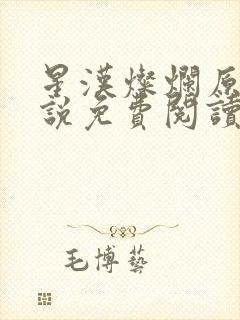 星漢燦爛原
說免費閱讀
毛博藝